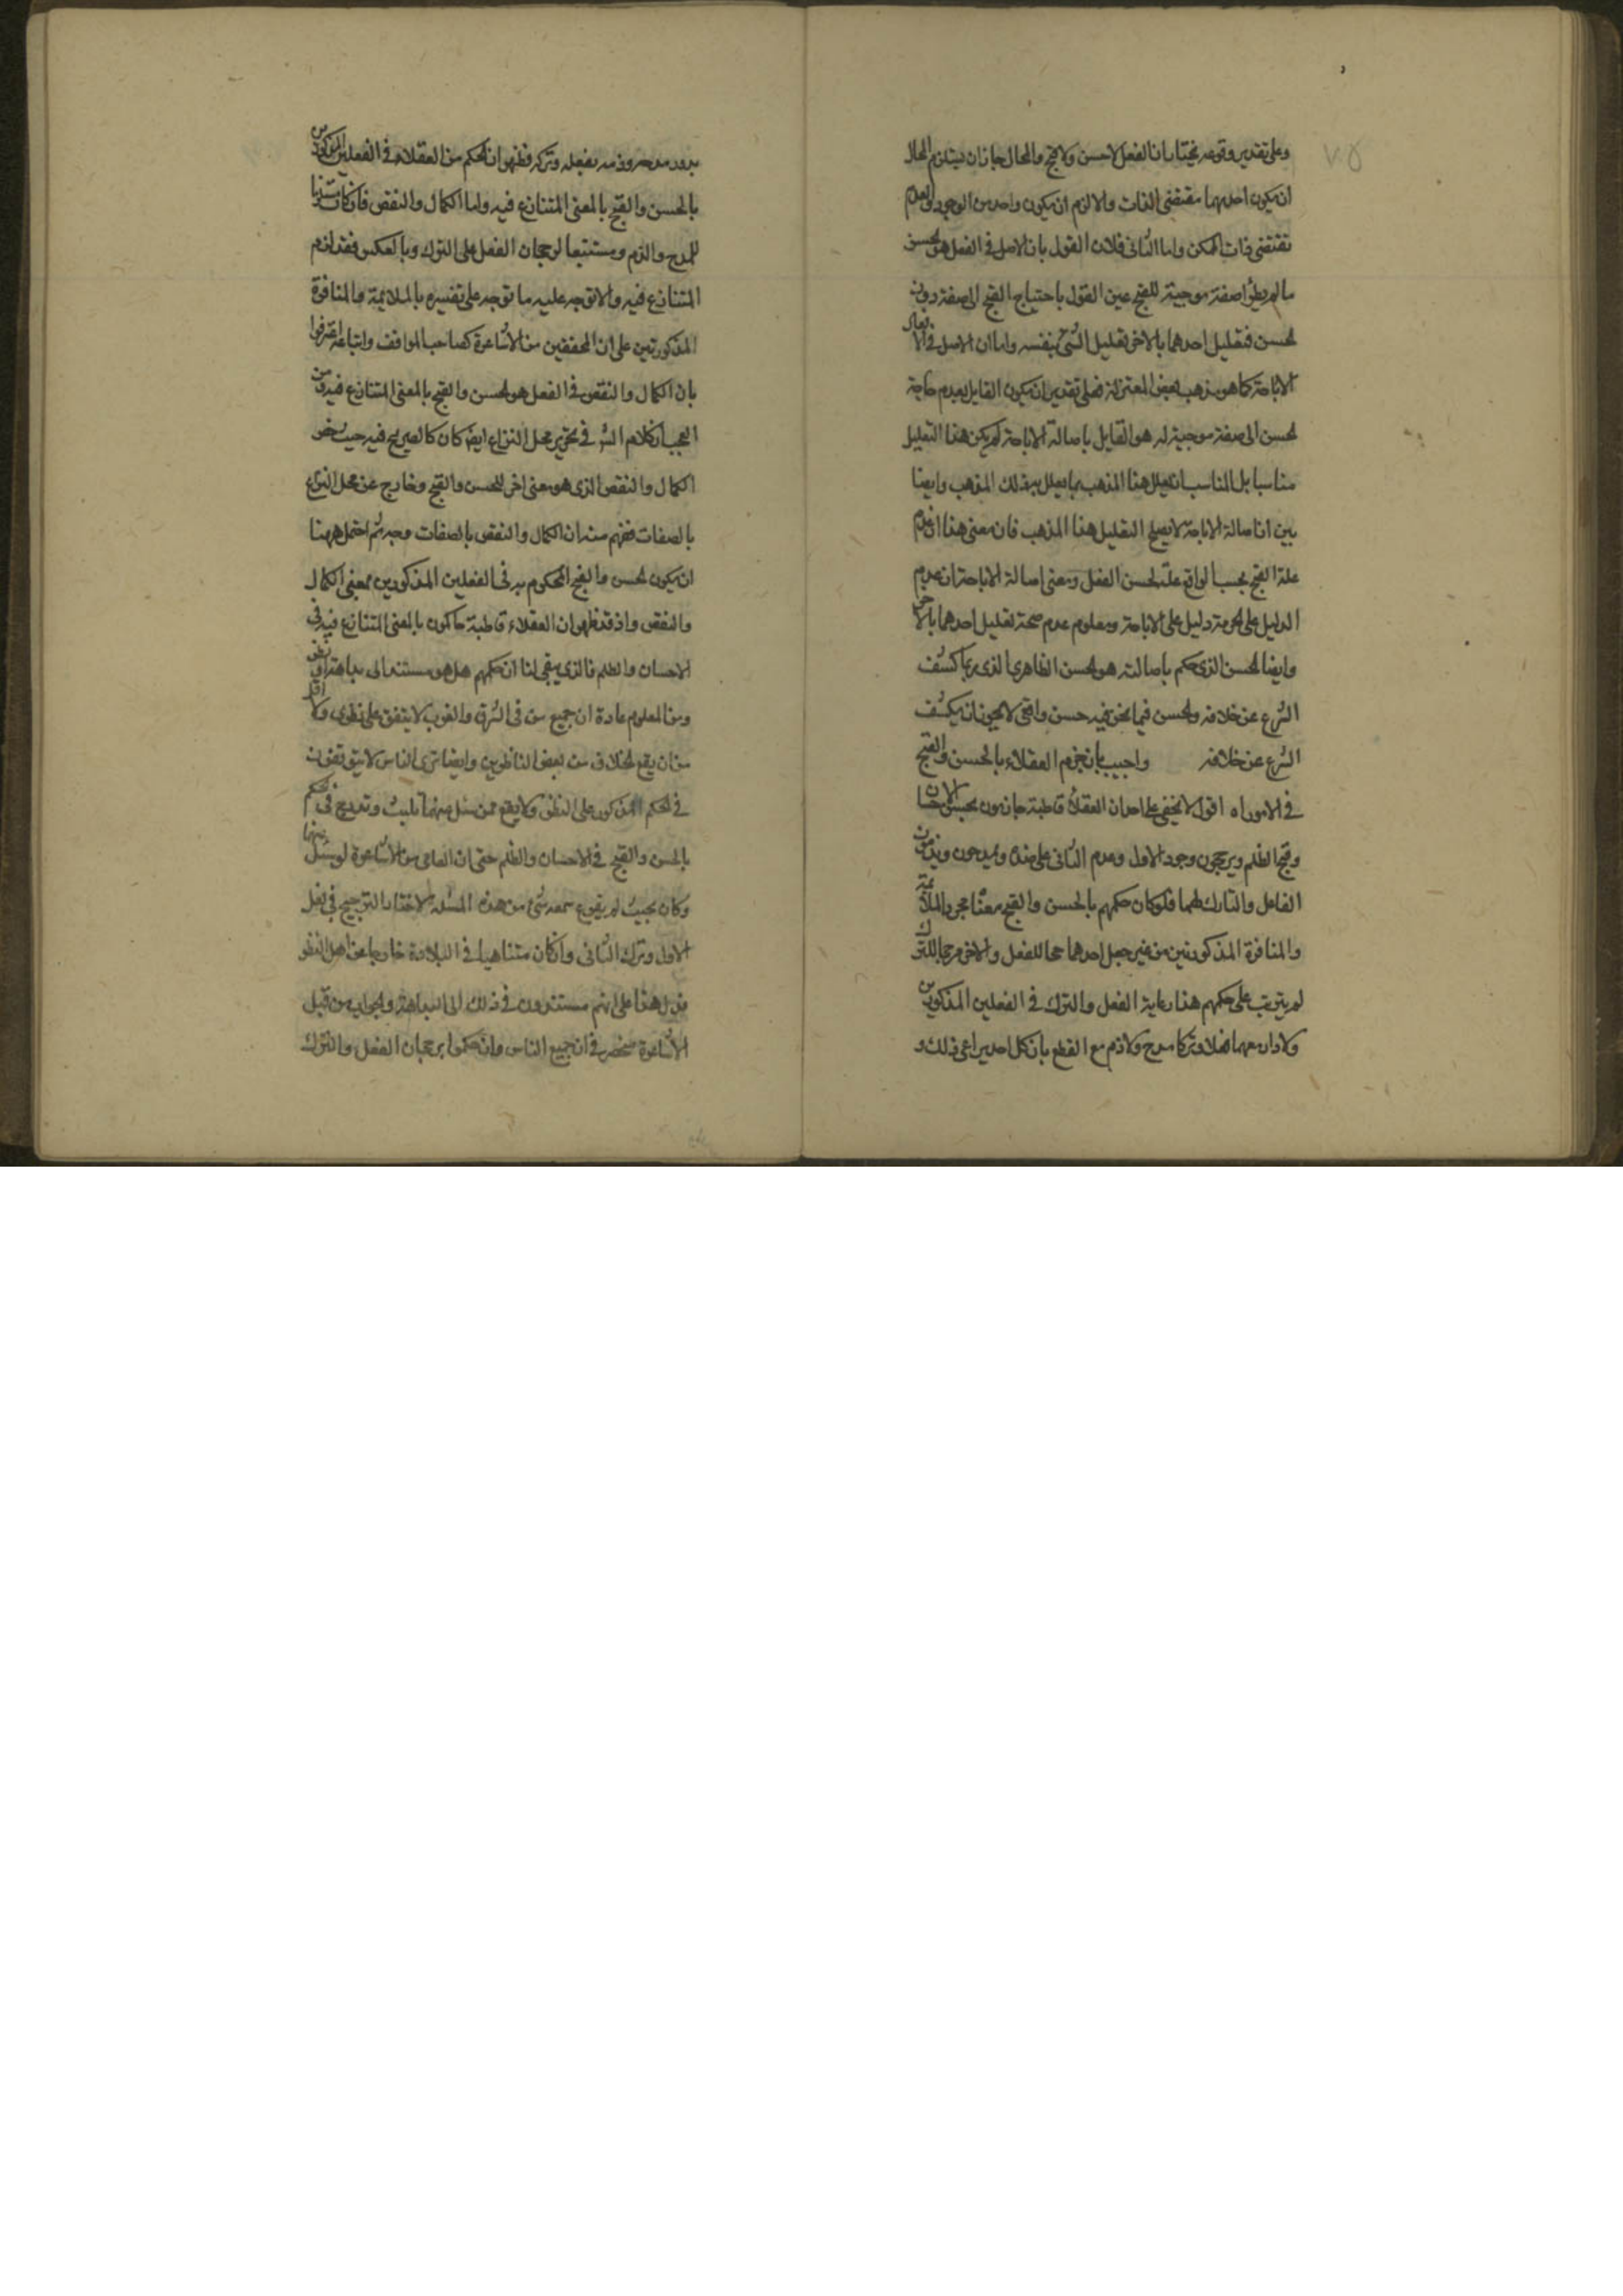 وعلى تقدير وقوعه نختار ان الفعل لا حسن ولا قبح والمحال جاز ان يستلزم المحال
ان يكون احدهما مقتضى الذات والا لزم ان يكون واحد من الوجود والعدم
مقتضى ذات الممكن واما الثانى فلان القول بان الاصل فى الفعل هو الحسن
ما لم يطرأ صفة موجبة للقبح عين القول باحتياج القبح الى صفة دون
الحسن فتعليل احدهما بالاخر تعليل الشئ بنفسه واما ان الاصل فى الافعال
الاباحة كما هو مذهب بعض المعتزلة فعلى تقدير ان يكون القايل بعدم حاجة
الحسن الى صفة موجبة له هو القايل باصالة الاباحة لم يكن هذا التعليل
مناسبا بل المناسب ان يعلل هذا المذهب بما يعلل به ذلك المذهب وايضا
بين ان اصالة الاباحة لا يصلح لتعليل هذا المذهب فان معنى هذا ان عدم
علة القبح بحسب الواقع علة لحسن الفعل ومعنى اصالة الاباحة ان عدم
الدليل على الحرمة دليل على الاباحة ومعلوم عدم صحة تعليل احدهما بالاخر
وايضا الحسن الذى حكم باصالته هو الحسن الظاهرى الذى ربما كشف
الشرع عن خلافه والحسن فيما نحن فيه حسن واقعى لا يجوز ان يكشف
الشرع عن خلافه واجيب بان جزم العقلاء بالحسن والقبح
فى الامور اه اقول لا يخفى على احد ان العقلاء قاطبة جازمون بحسن الاحسان
وقبح الظلم ويرجحون وجود الاول وعدم الثانى على ضده ويمدحون ويذمون
الفاعل والتارك لهما فلو كان حكمهم بالحسن والقبح بمعنى مجرد الملائمة
والمنافرة المذكورتين من غير جعل احدهما مرجحا للفعل والاخر مرجحا للترك
لم يترتب على حكمهم هذا رعاية الفعل والترك فى الفعلين المذكورين
ولا دار معهما فعلا وتركا مدح ولا ذم مع القطع بان كل احد يراعى ذلك و
يدور مدحه وذمه بفعله وتركه فظهر ان الحكم من العقلاء فى الفعلين المذكورين
بالحسن والقبح بالمعنى المتنازع فيه واما الكمال والنقص فان كان مستلزما
للمدح والذم ومستتبعا لرجحان الفعل على الترك وبالعكس فقد لزم
المتنازع فيه والا توجه عليه ما توجه على تفسيره بالملايمة والمنافرة
المذكورتين على ان المحققين من الاشاعرة كصاحب المواقف واتباعه اعترفوا
بان الكمال والنقص فى الفعل هو الحسن والقبح بالمعنى المتنازع فيه ومن
العجب ان كلام الش فى تحرير محل النزاع ايضا كان كالصريح فيه حيث خص
الكمال والنقص الذى هو معنى اخر للحسن والقبح وخارج عن محل النزاع
بالصفات ففهم منه ان الكمال والنقص بالصفات وجه ثم احتمل ههنا
ان يكون الحسن والقبح المحكوم به فى الفعلين المذكورين بمعنى الكمال
والنقص واذ قد ظهر ان العقلاء قاطبة حاكمون بالمعنى المتنازع فيه فى
الاحسان والظلم فالذى يبقى لنا ان حكمهم هل هو مستند الى بداهة او نظر
ومن المعلوم عادة ان جميع من فى الشرق والغرب لا يتفق على نظرى ولا اقل
من ان يقع الخلاف من بعض الناظرين وايضا نرى الناس لا يتوقفون
فى الحكم المذكور على النظر ولا يقع ممن سئل منهما تلبث وتدرج فى الحكم
بالحسن والقبح فى الاحسان والظلم حتى ان العامى من الاشاعرة لو سئل عنهما
وكان بحيث لم يقرع سمعه شئ من هذه المسئلة لاختار الترجيح فى فعل
الاول وترك الثانى وان كان متناهيا فى البلادة خارجا عن اهل النظر
فدل هذا على انهم مستندون فى ذلك الى البداهة والجواب من قبل
الاشاعرة منحصر فى ان جميع الناس وان حكموا برجحان الفعل والترك